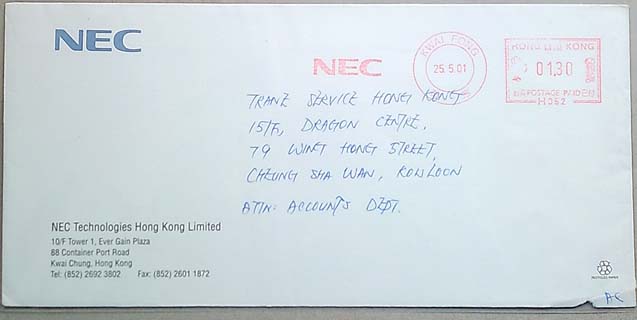 NEC
NEC
KWAI FONG
25.5.01
HONG KONG
01.30
POSTAGE PAID
H 062
TRANE SERVICE HONG KONG
15/F, DRAGON CENTRE,
79 WING HONG STREET,
CHEUNG SHA WAN, KOWLOON
ATTN: ACCOUNTS DEPT.
NEC Technologies Hong Kong Limited
10/F Tower 1, Ever Gain Plaza
88 Container Port Road
Kwai Chung, Hong Kong
Tel: (852) 2692 3802 Fax: (852) 2601 1872
RECYCLED PAPER
AC